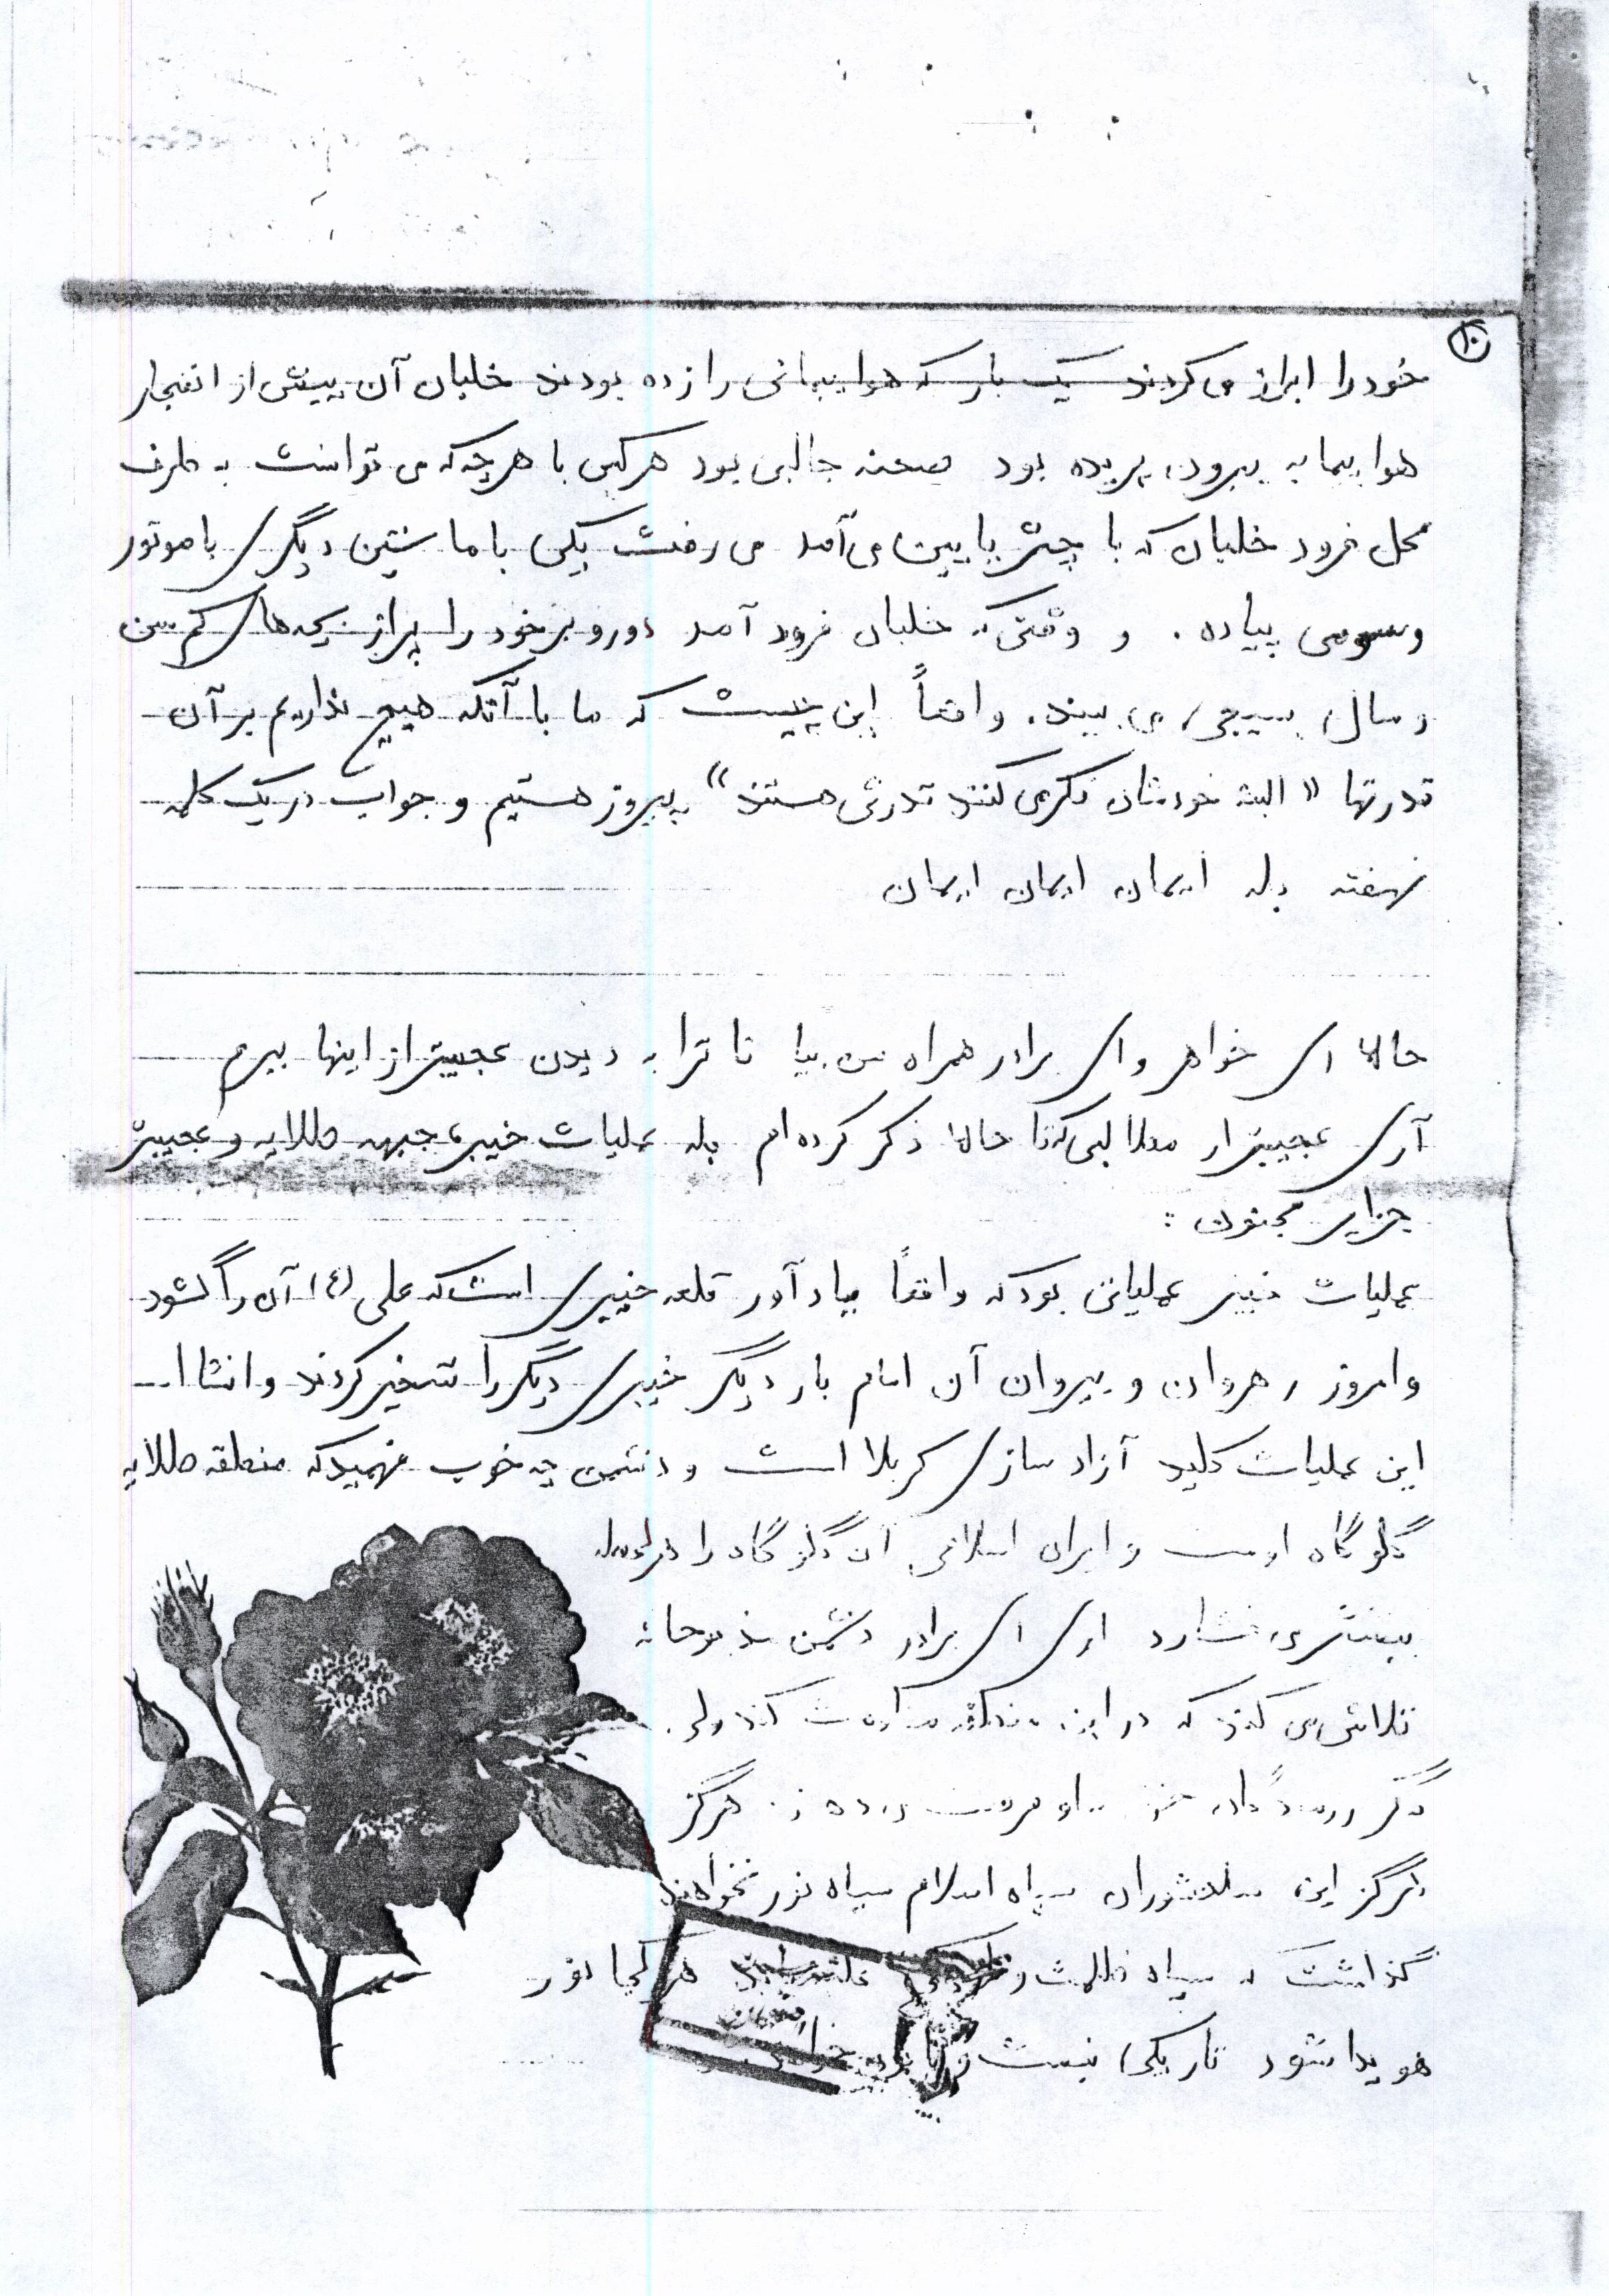 ۱۰
خود را ابراز می کردند یک بار که هواپیمائی را زده بودند خلبان آن پیش از انفجار
هواپیما به بیرون پریده بود صحنه جالبی بود هر کس با هر چه که می توانست به طرف
محل فرود خلبان که با چتر پایین می آمد می رفت یکی با ماشین دیگری با موتور
و سومی پیاده . و وقتی که خلبان فرود آمد دور و بر خود را پر از بچه های کم سن
و سال بسیجی می بیند . واقعاً این چیست که ما با آنکه هیچ نداریم بر آن
قدرتها « البته خودشان فکر می کنند قدرتی هستند » پیروز هستیم و جواب در یک کلمه
نهفته بله ایمان ایمان ایمان
حالا ای خواهر و ای برادر همراه من بیا تا ترا به دیدن عجیبتر از اینها ببرم
آری عجیبتر از مطالبی که تا حالا ذکر کرده ام بله عملیات خیبر جبهه طلایه و عجیبتر
جزایر مجنون :
عملیات خیبر عملیاتی بود که واقعاً بیاد آور قلعه خیبری است که علی (ع) آن را گشود
و امروز رهروان و پیروان آن امام بار دیگر خیبری دیگر را تسخیر کردند و انشا ا...
این عملیات کلید آزاد سازی کربلا است و دشمن چه خوب فهمید که منطقه طلایه
گلوگاه اوست و ایران اسلامی آن گلوگاه را هر لحظه
بیشتر می فشارد آری ای برادر دشمن مذبوحانه
تلاش می کند که در این منطقه مقاومت کند ولی
مگر رزمندگان هرگز
هرگز این سلحشوران سپاه اسلام سپاه نور نخواهند
گذاشت که سپاه ظلمت و هر کجا نور
هویدا شود تاریکی نیست